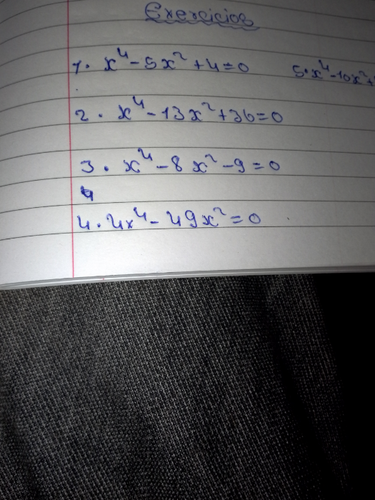 Exercicios
1. x⁴-5x²+4=0 5. x⁴-10x²+
2. x⁴-13x²+36=0
3. x⁴-8x²-9=0
4
4. 4x⁴-49x²=0